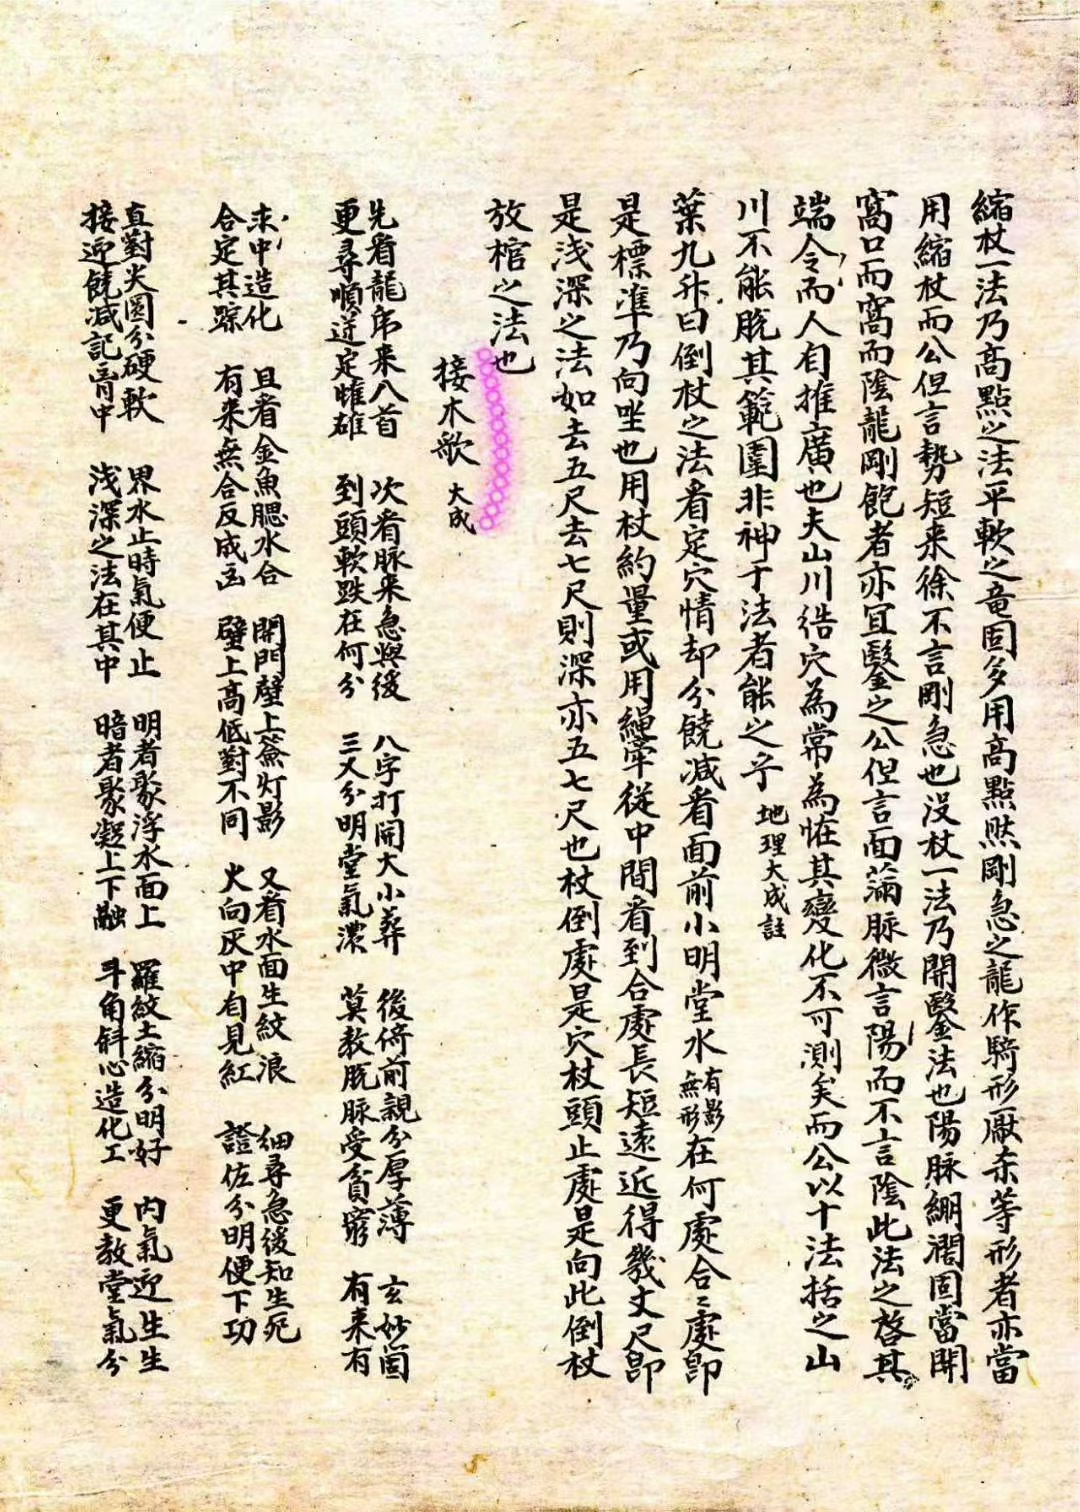 縮杖一法乃高點之法平軟之竜固多用高點然剛急之龍作騎形厭杀等形者亦當
用縮杖而公但言勢短来徐不言剛急也没杖一法乃開鑿法也陽脉綳濶固當開
窩口而窩而陰龍剛飽者亦宜鑿之公但言面滿脉微言陽而不言陰此法之啓其
端令而人自推廣也夫山川结穴為常為恠其變化不可測矣而公以十法括之山
川不能脱其範圍非神于法者能之乎 地理大成註
葉九升曰倒杖之法看定穴情却分饒减看面前小明堂水有影無形在何處合〻處即
是標準乃向坐也用杖約量或用繩牽從中間看到合處長短遠近得幾丈尺即
是浅深之法如去五尺去七尺則深亦五七尺也杖倒處是穴杖頭止處是向此倒杖
放棺之法也
接木歌 大成
先看龍帝来八首 次看脉来急與後 八字打開大小葬 後倚前親分厚薄 玄妙箇
更尋順逆定雌雄 到頭軟跌在何分 三叉分明堂氣濃 莫教脱脉受貧窮 有来有
求中造化 且看金魚腮水合 開門壁上簽灯影 又看水面生紋浪 細尋急後知生死
合定其踪 有来無合反成凶 壁上高低對不同 火向灰中自見紅 證佐分明便下功
真對尖圓分硬軟 界水止時氣便止 明者聚浮水面上 羅紋土縮分明好 内氣迎生生
接迎饒减記胷中 浅深之法在其中 暗者聚凝上下融 斗角斜心造化工 更教堂氣分